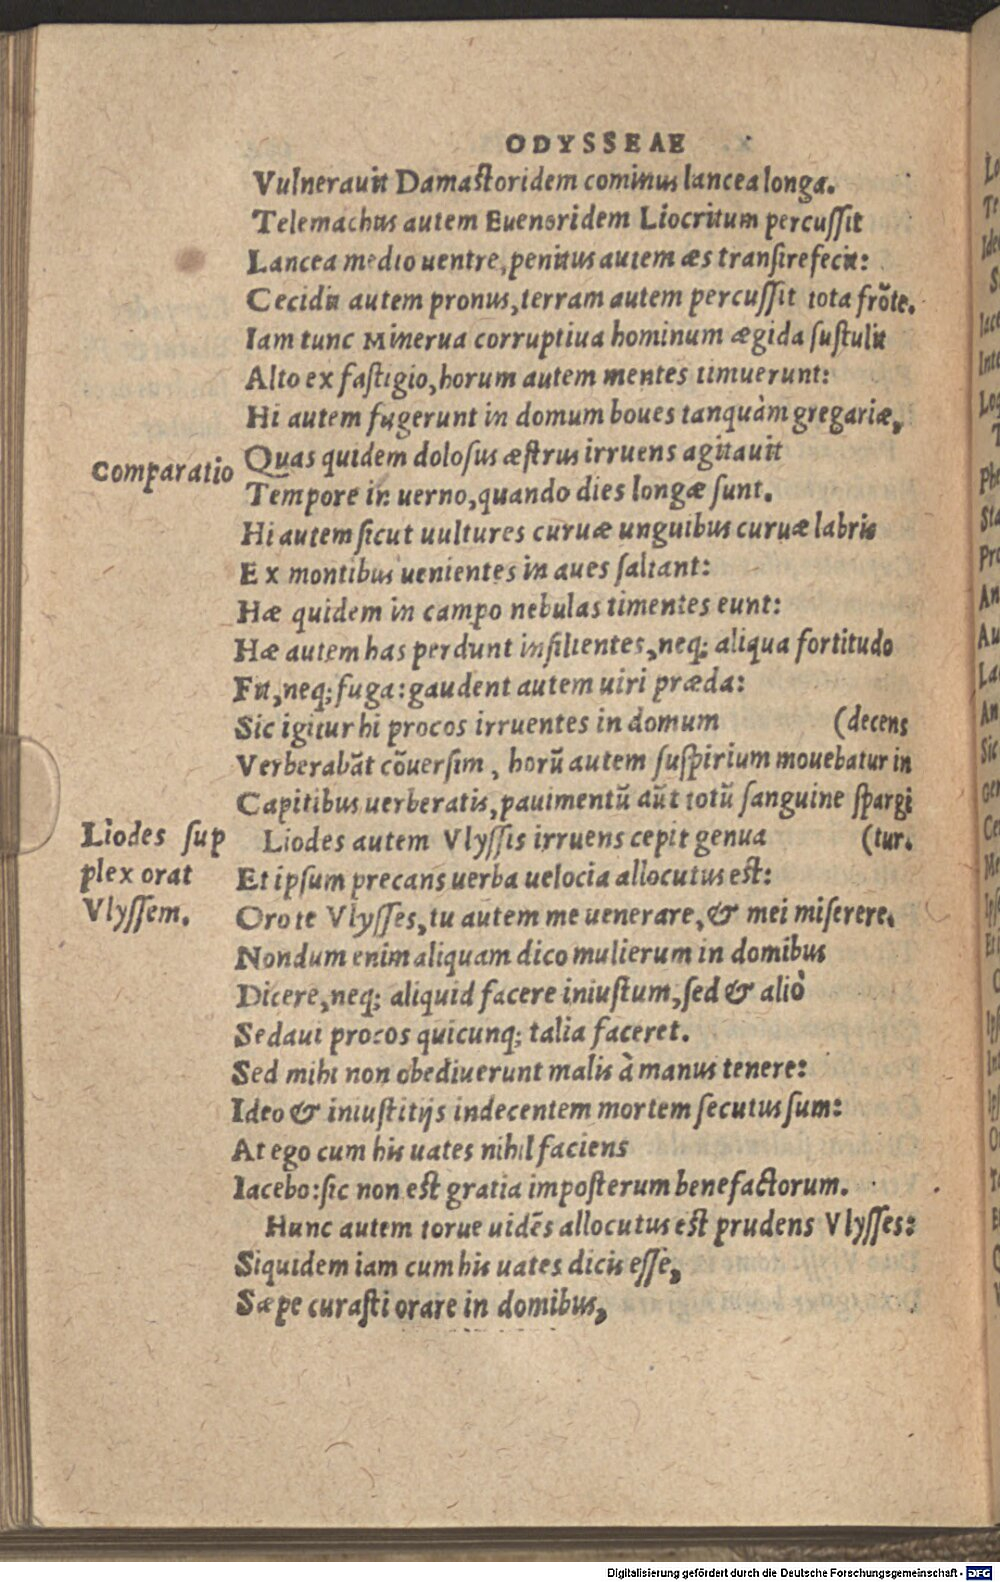 ODYSSEAE
Vulnerauit Damastoridem cominus lancea longa.
Telemachus autem Euenoridem Liocritum percussit
Lancea medio uentre, penitus autem æs transire fecit:
Cecidit autem pronus, terram autem percussit tota frõte.
Iam tunc Minerua corruptiua hominum ægida sustulit
Alto ex fastigio, horum autem mentes timuerunt:
Hi autem fugerunt in domum boues tanquàm gregariæ,
Comparatio
Quas quidem dolosus æstrus irruens agitauit
Tempore in uerno, quando dies longæ sunt.
Hi autem sicut uultures curuæ unguibus curuæ labris
Ex montibus uenientes in aues saltant:
Hæ quidem in campo nebulas timentes eunt:
Hæ autem has perdunt insilientes, neq; aliqua fortitudo
Fit, neq; fuga: gaudent autem uiri præda:
Sic igitur hi procos irruentes in domum (decens
Verberabãt cõuersim, horũ autem suspirium mouebatur in
Capitibus uerberatis, pauimentũ aũt totũ sanguine spargi
Liodes sup
plex orat
Vlyssem.
Liodes autem Vlyssis irruens cepit genua (tur.
Et ipsum precans uerba uelocia allocutus est:
Oro te Vlysses, tu autem me uenerare, & mei miserere.
Nondum enim aliquam dico mulierum in domibus
Dicere, neq; aliquid facere iniustum, sed & aliò
Sedaui procos quicunq; talia faceret.
Sed mihi non obediuerunt malis à manus tenere:
Ideo & iniustitijs indecentem mortem secutus sum:
At ego cum his uates nihil faciens
Iacebo: sic non est gratia imposterum benefactorum.
Hunc autem torue uidẽs allocutus est prudens Vlysses:
Siquidem iam cum his uates dicis esse,
Sæpe curasti orare in domibus,
Digitalisierung gefördert durch die Deutsche Forschungsgemeinschaft - DFG